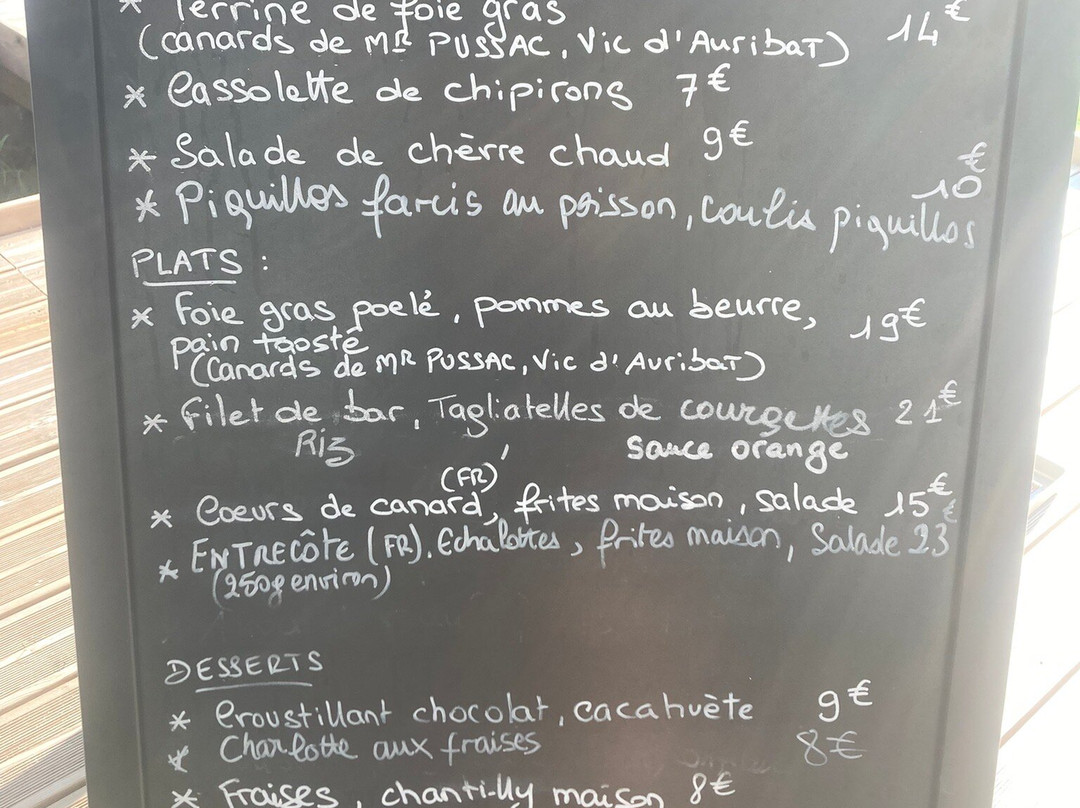 * Terrine de foie gras
(canards de MR PUSSAC, Vic d'AuribaT) 14€
* Cassolette de chipirons 7€
* Salade de chèvre chaud 9€
* Piquillos farcis au poisson, coulis piquillos 10€
PLATS :
* Foie gras poelé, pommes au beurre, 19€
pain toasté
(Canards de MR PUSSAC, Vic d'AuribaT)
* filet de bar, Tagliatelles de courgettes 21€
Riz sauce orange
(FR)
* Coeurs de canard, frites maison, salade 15€
* ENTRECôTE (FR). Echalottes, frites maison, Salade 23€
(250g environ)
DESSERTS
* Croustillant chocolat, cacahuète 9€
* Charlotte aux fraises 8€
* Fraises, chantilly maison 8€